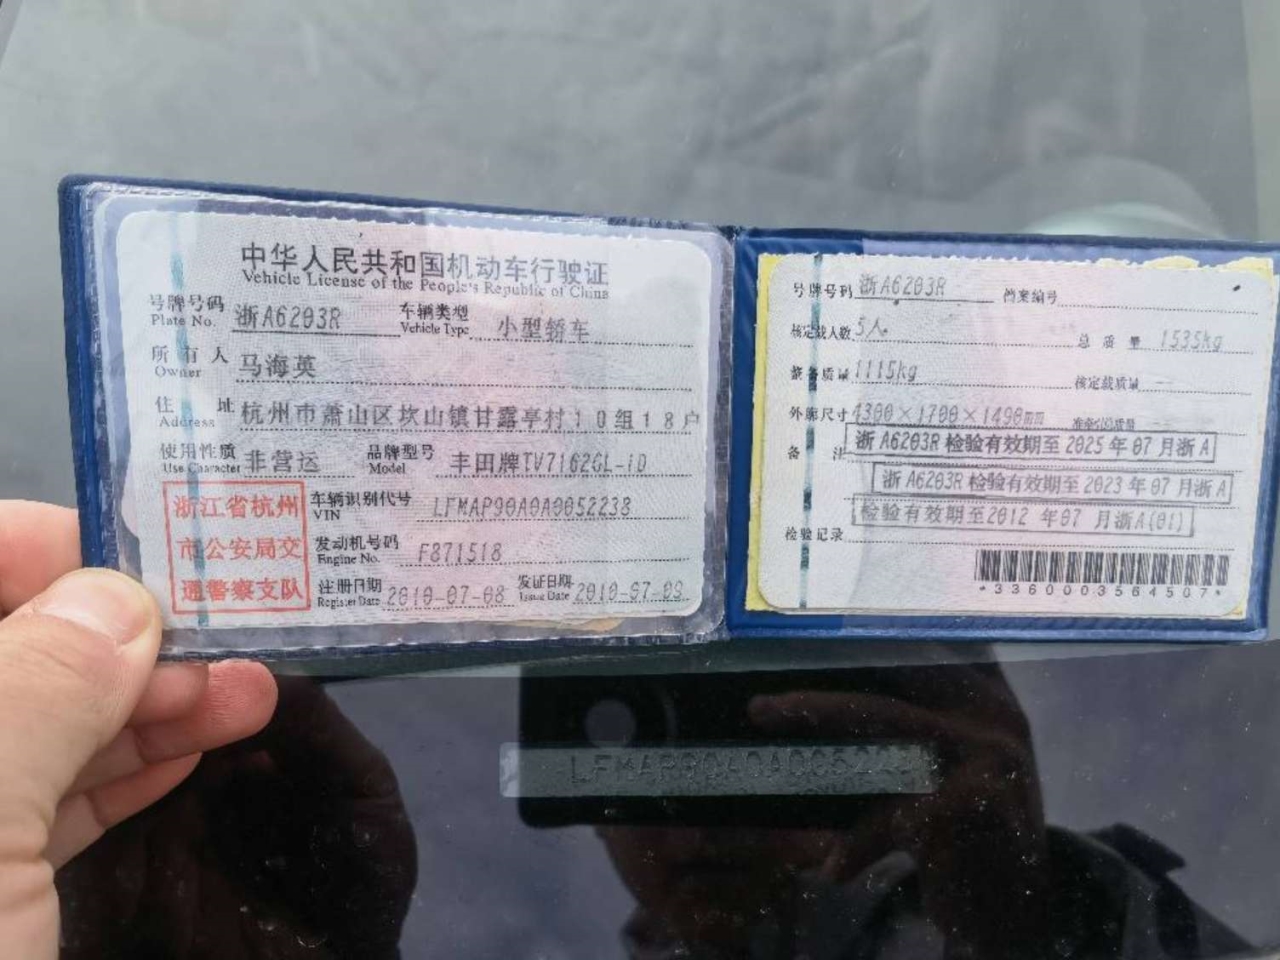 中华人民共和国机动车行驶证
Vehicle License of the People's Republic of China
号牌号码 浙A6203R 车辆类型 小型轿车
Plate No. Vehicle Type
所有人 马海英
Owner
住址 杭州市萧山区坎山镇甘露亭村10组18户
Address
使用性质 非营运 品牌型号 丰田牌TV7162GL-iD
Use Character Model
浙江省杭州
市公安局交
通警察支队
车辆识别代号 LFMAP90A0A0052238
VIN
发动机号码 F871518
Engine No.
注册日期 2010-07-08 发证日期 2010-07-09
Register Date Issue Date
号牌号码 浙A6203R 档案编号
核定载人数 5人 总质量 1535kg
整备质量 1115kg 核定载质量 --
外廓尺寸 4300×1700×1490mm 准牵引总质量
备注 浙A6203R 检验有效期至2025年07月浙A
浙A6203R 检验有效期至2023年07月浙A
检验记录 检验有效期至2012年07月浙A(01)
*3360003564507*